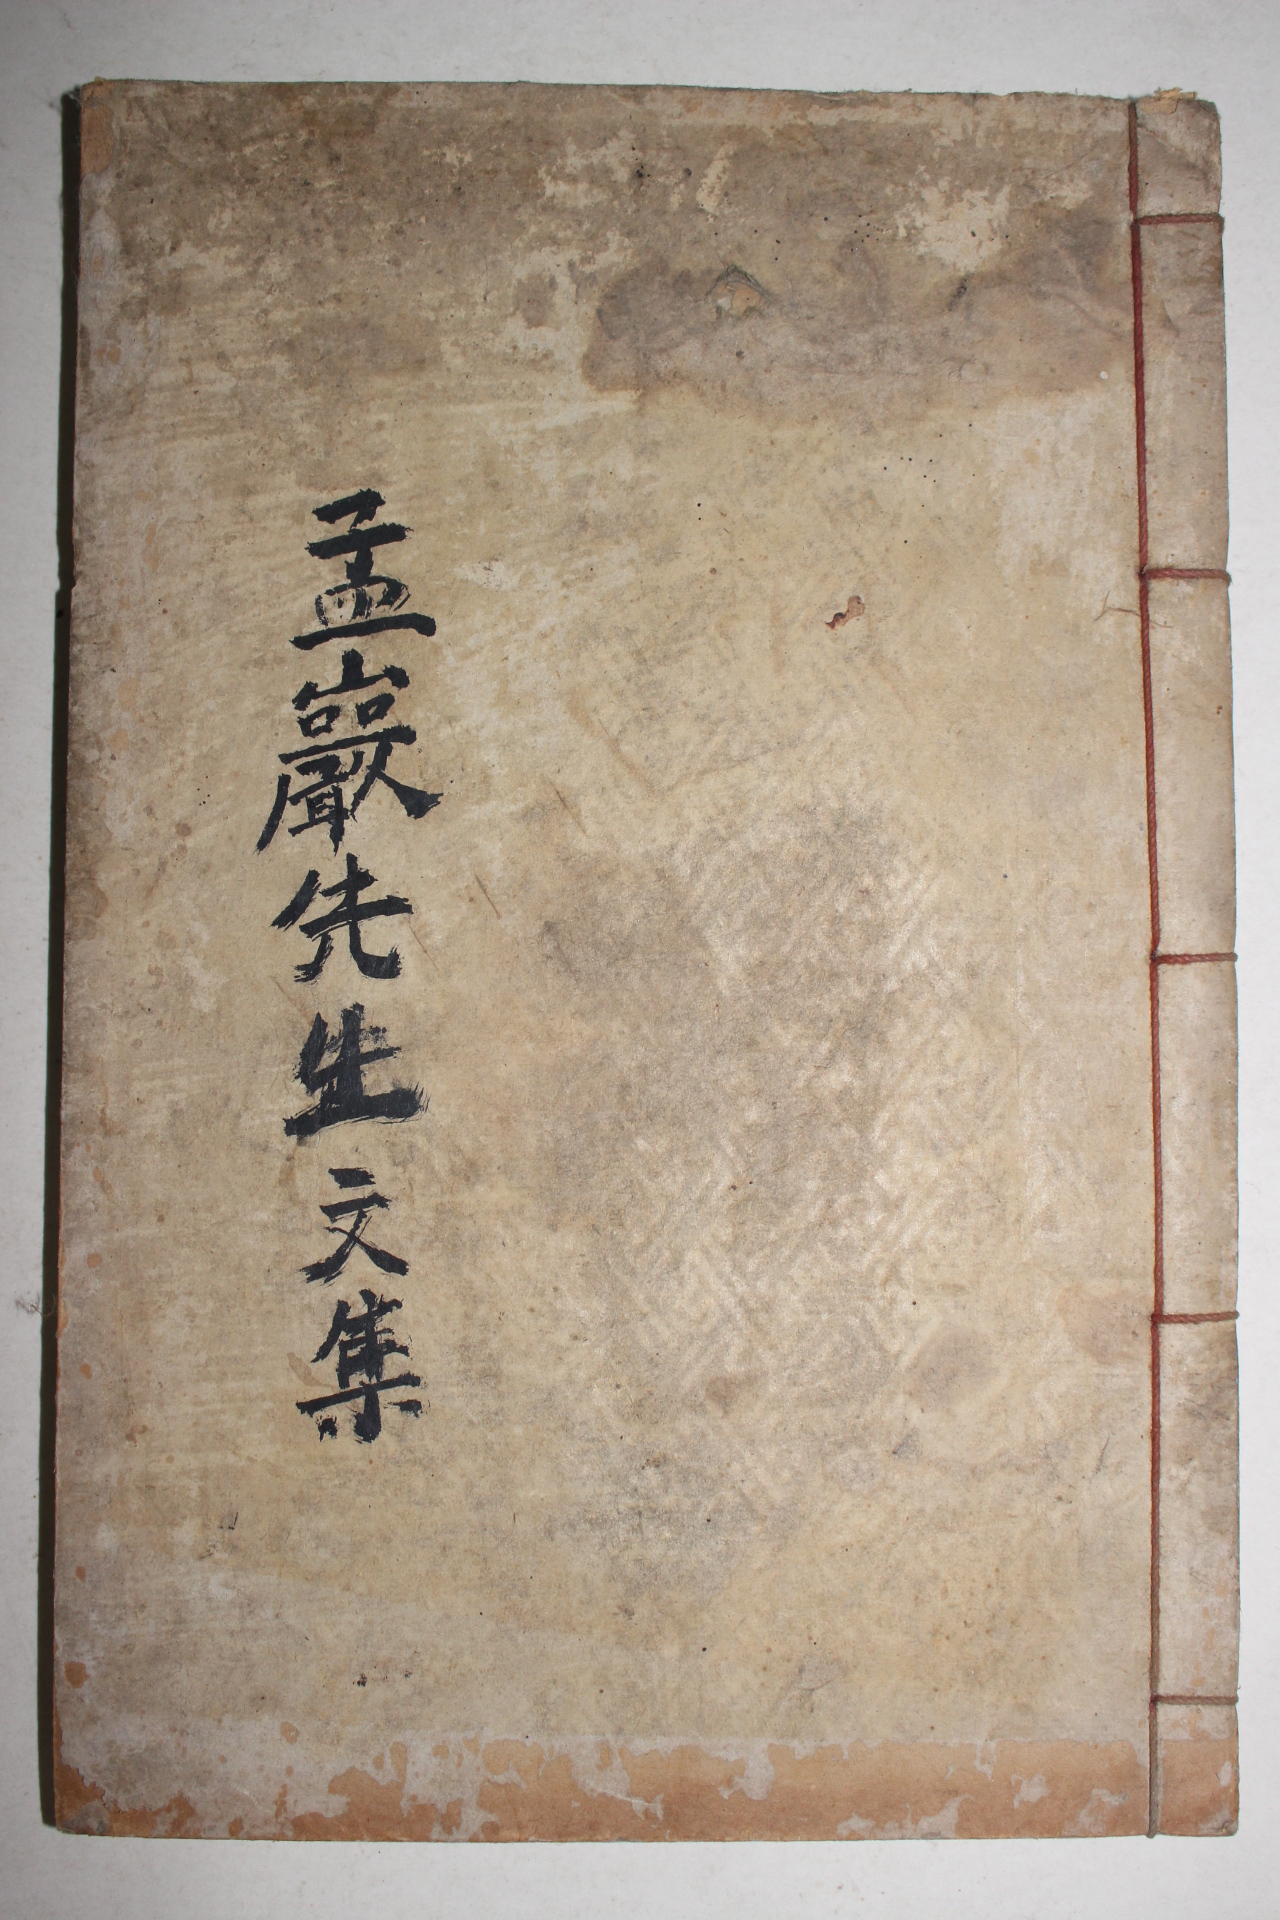 孟巖先生文集